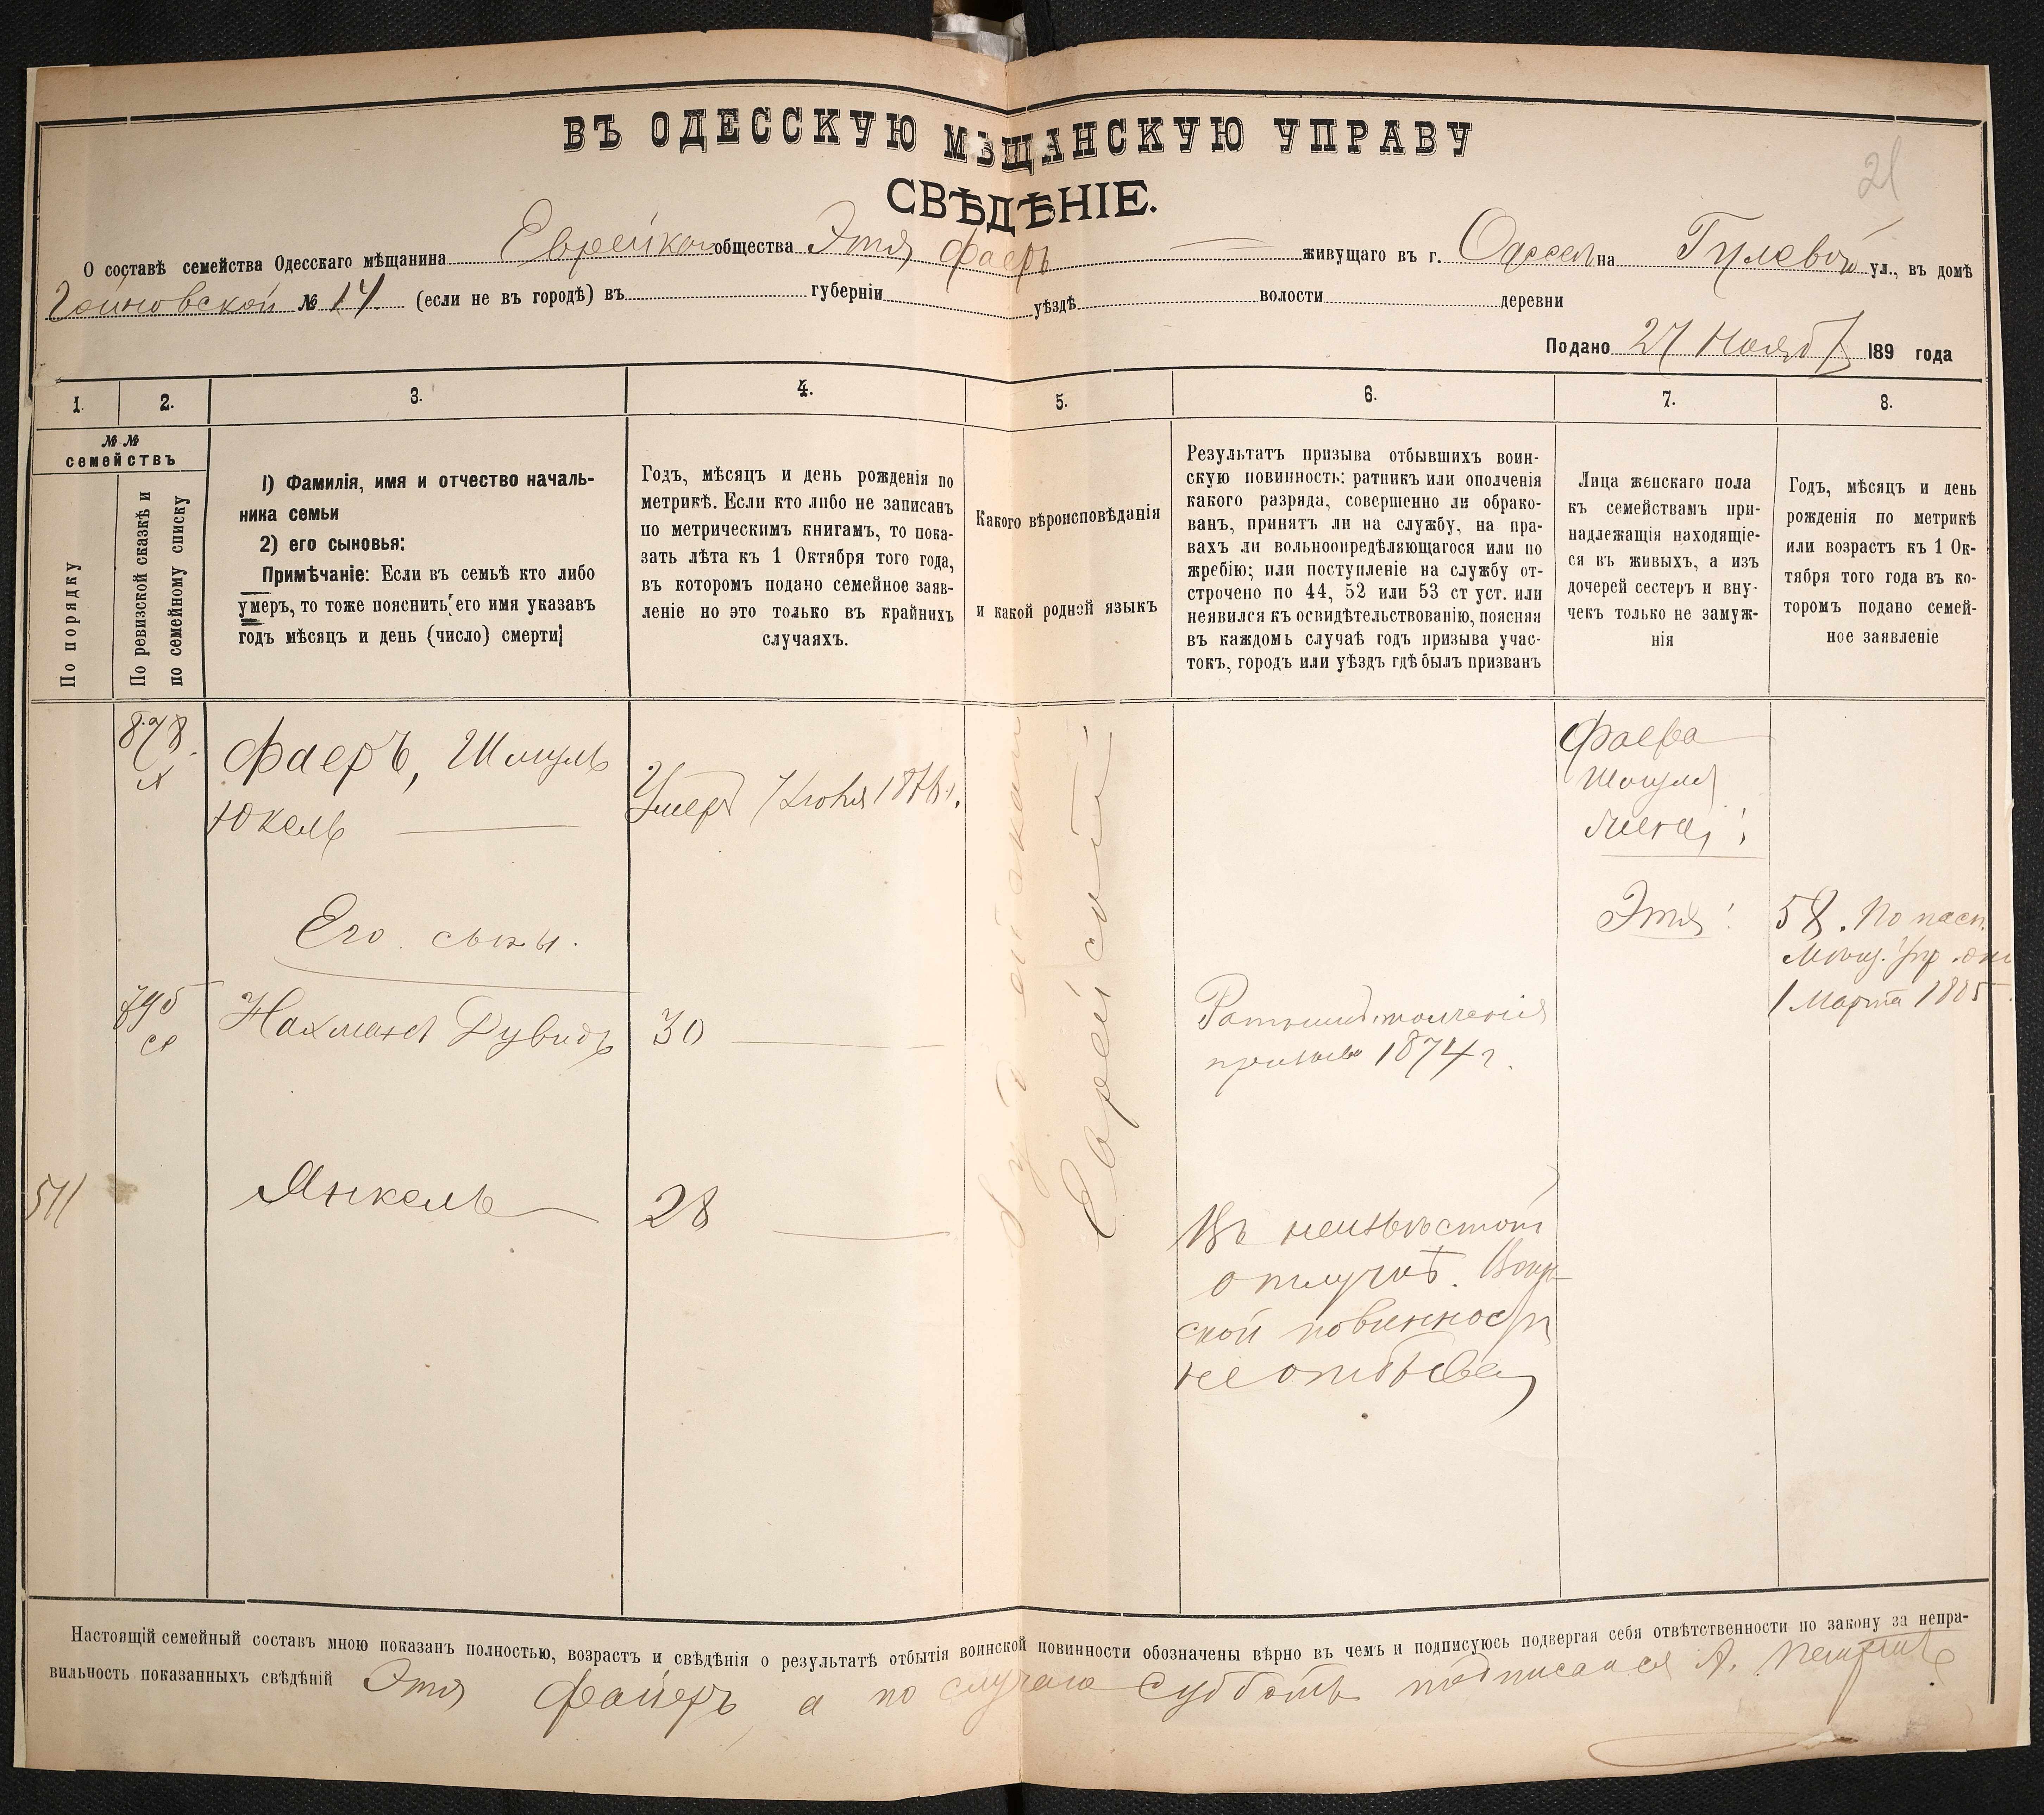 21
ВЪ ОДЕССКУЮ МѢЩАНСКУЮ УПРАВУ
СВѢДѢНІЕ.
О составѣ семейства Одесскаго мѣщанина Еврейскаго общества Этя Фаеръ живущаго въ г. Одессѣ на ул., въ домѣ
№ 14. (если не въ городѣ) въ губерніи уѣздѣ волости деревни
Подано 27 Ноября 189 года
1. 2. 3. 4. 5. 6. 7. 8.
№ №
семействъ
По порядку
По ревизской сказкѣ и
по семейному списку
1) Фамилія, имя и отчество началь-
ника семьи
2) его сыновья:
Примѣчаніе: Если въ семьѣ кто либо
умеръ, то тоже пояснить его имя указавъ
годъ мѣсяцъ и день (число) смерти
Годъ, мѣсяцъ и день рожденія по
метрикѣ. Если кто либо не записанъ
по метрическимъ книгамъ, то пока-
зать лѣта къ 1 Октября того года,
въ которомъ подано семейное заяв-
леніе но это только въ крайнихъ
случаяхъ.
Какого вѣроисповѣданія
и какой родной языкъ
Результатъ призыва отбывшихъ воин-
скую повинность: ратникъ или ополченія
какого разряда, совершенно ли обрако-
ванъ, принятъ ли на службу, на пра-
вахъ ли вольноопредѣляющагося или по
жребію; или поступленіе на службу от-
строчено по 44, 52 или 53 ст уст. или
неявился къ освидѣтельствованію, поясняя
въ каждомъ случаѣ годъ призыва учас-
токъ, городъ или уѣздъ гдѣ былъ призванъ
Лица женскаго пола
къ семействамъ при-
надлежащія находящіе-
ся въ живыхъ, а изъ
дочерей сестеръ и вну-
чекъ только не замуж-
нія
Годъ, мѣсяцъ и день
рожденія по метрикѣ
или возрастъ къ 1 Ок-
тября того года въ ко-
торомъ подано семей-
ное заявленіе
878
Фаеръ, Шмуль
Юкель
Умеръ
Іудейскаго
Еврейскій
Фаера
Шмуля
жена:
Его сыны.
Этя:
58. По пасп.
Мѣщ. Упр. отъ
1 Марта 1885
795
Нахманъ Дувидъ
30
Ратникъ ополченія
призыва 1874 г.
511
Янкель
28
Въ неизвѣстной
отлучкѣ. Воин-
ской повинности
не отбывалъ
Настоящій семейный составъ мною показанъ полностью, возрастъ и свѣдѣнія о результатѣ отбытія воинской повинности обозначены вѣрно въ чемъ и подписуюсь подвергая себя отвѣтственности по закону за непра-
вильность показанныхъ свѣдѣній Этя Файеръ а по случаю Субботы подписался А.